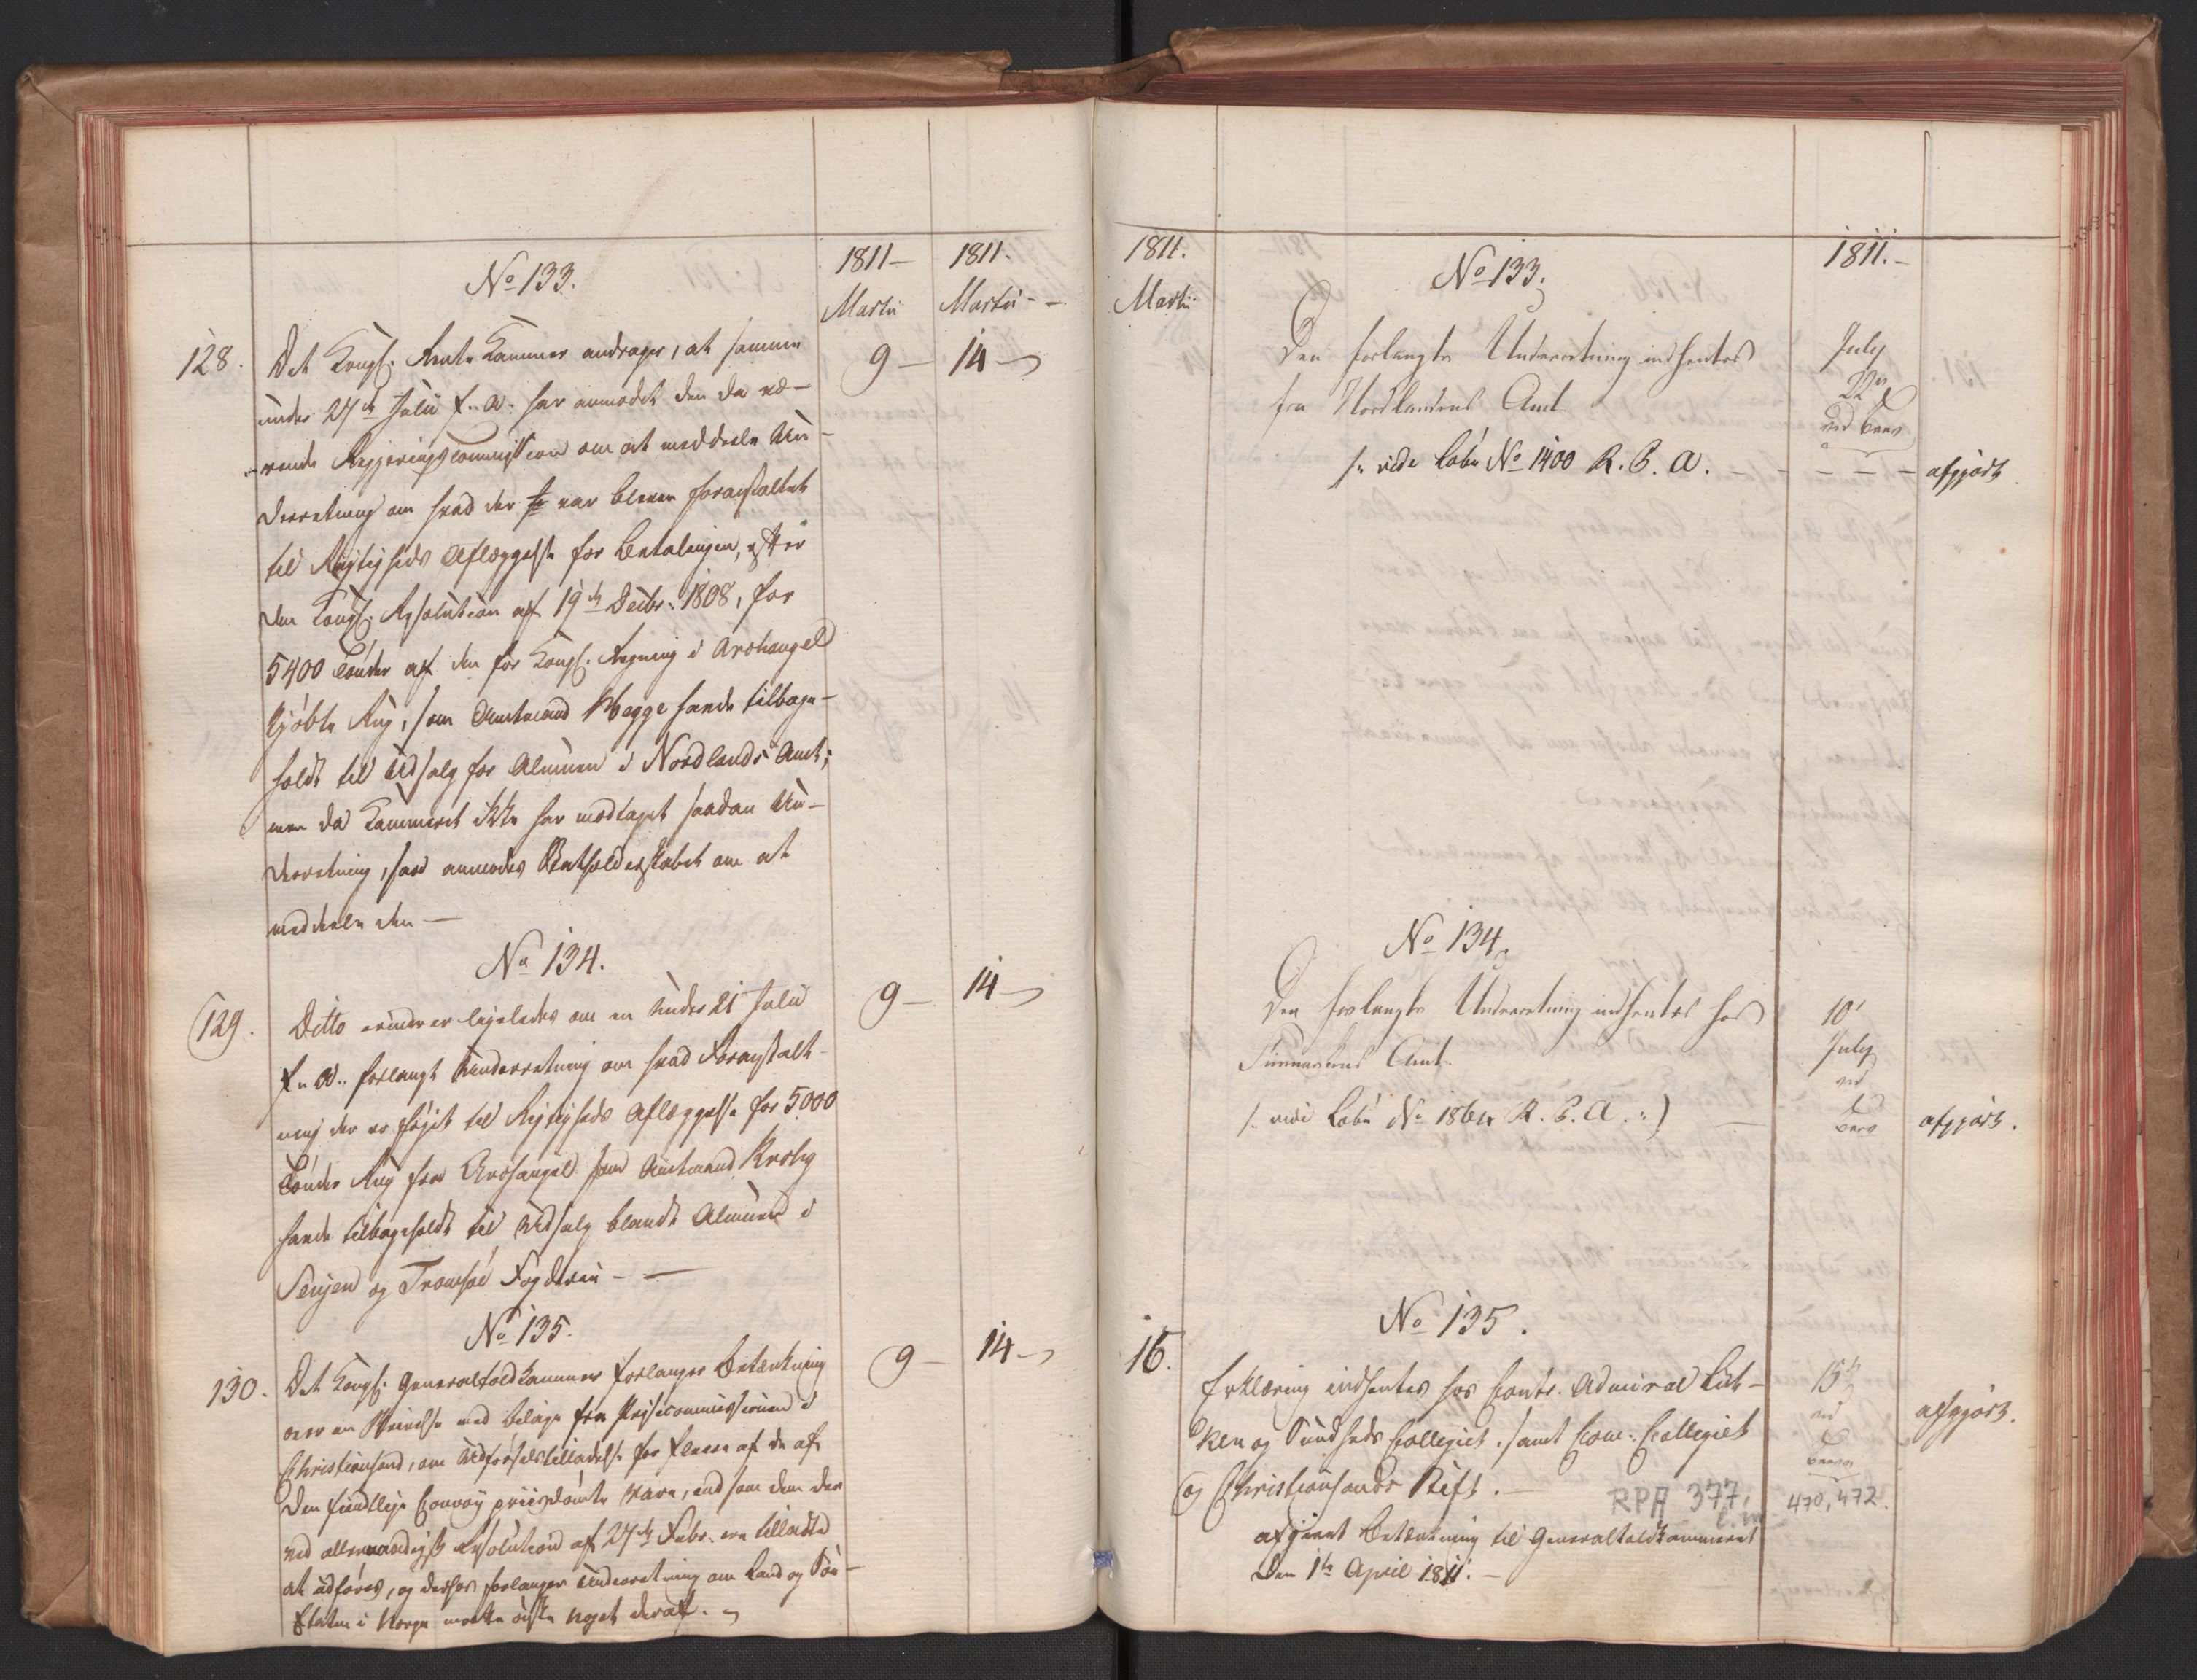 1811 –
1811.
Martii
Martii - -
No 133.
128.
Det Kongl. Rente Kammer andrager, at samme
9 –
14 –
under 27de Julii f. A. har anmodet den da væ-
rende Regjeringscommission om at meddeele Un-
derretning om hvad der var bleven foranstaltet
til Rigtigheds Aflæggelse for Betalingen, efter
den Kongl. Resolution af 19de Decbr. 1808, for
5400 Tønder af den for Kongl. Regning i Archangel
kjøbte Rug, som Amtmand Hegge havde tilbage-
holdt til Udsalg for Almuen i Nordlands Amt;
men da Kammeret ikke har modtaget saadan Un-
derretning, saa anmodes Statholderskabet om at
meddeele den —
No 134.
129.
Ditto erindrer ligeledes om en under 21 Julii
9 –
14 –
f. A. forlangt Underretning om hvad Foranstalt-
ning der er føjet til Rigtigheds Aflæggelse for 5000
Tønder Rug fra Archangel som Amtmand Krohg
havde tilbageholdt til Udsalg blandt Almuen i
Senjen og Tromsøe Fogderie — —
No 135.
130.
Det Kongl. Generaltoldkammer forlanger Betænkning
9 –
14 –
over en Skrivelse med Bilage fra Prisecommissionen i
Christiansand, om Udførselstilladelse for fleere af de af
den fiendtlige Convoy priisdømte Vare, end som dem der
ved allernaadigst Resolution af 27de Febr. ere tilladte
at udføres, og derhos forlanges Underretning om Land og Søe-
Etaten i Norge maatte ønske noget deraf. –
1811.
Martii
No 133.
1811. –
Den forlangte Underretning indhentes
fra Nordlandens Amt
July
22de
ved Brev
/: vide Lobe No 1400 R. C. A. – – – –
afgjort
No 134.
Den forlangte Underretning indhentes hos
Finmarkens Amt
10'
July
ved
Brev
/: vide Lobe No 1864 R. C. A. :/
afgjort.
No 135.
16.
Erklæring indhentes hos Contr. Admiral Lüt-
ken og Sundheds Collegiet, samt Com: Collegiet
og Christiansands Stift. –
15de
ved
Breve
afgjort.
RPA 377,
470, 472.
afgivet Betænkning til Generaltoldkammeret
den 1te April 1811. –